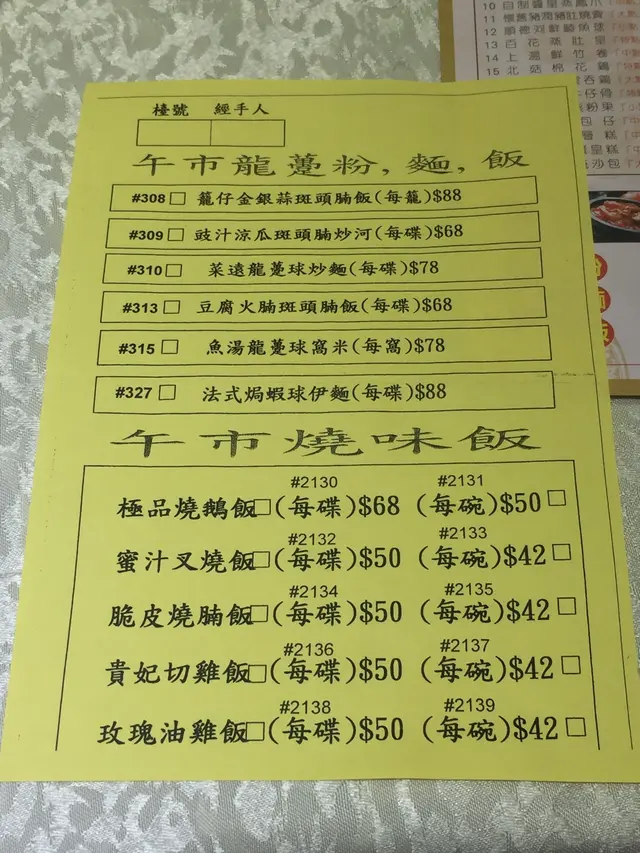 檯號 經手人
午市龍躉粉，麵，飯
#308 □ 籠仔金銀蒜斑頭腩飯(每籠)$88
#309 □ 豉汁涼瓜斑頭腩炒河(每碟)$68
#310 □ 菜遠龍躉球炒麵(每碟)$78
#313 □ 豆腐火腩斑頭腩飯(每碟)$68
#315 □ 魚湯龍躉球窩米(每窩)$78
#327 □ 法式焗蝦球伊麵(每碟)$88
午市燒味飯
#2130 #2131
極品燒鵝飯□(每碟)$68 (每碗)$50□
#2132 #2133
蜜汁叉燒飯□(每碟)$50 (每碗)$42□
#2134 #2135
脆皮燒腩飯□(每碟)$50 (每碗)$42□
#2136 #2137
貴妃切雞飯□(每碟)$50 (每碗)$42□
#2138 #2139
玫瑰油雞飯□(每碟)$50 (每碗)$42□
10
11
12
13 百花蒸肚
14 上湯鮮竹卷
15 北菇棉花鷄